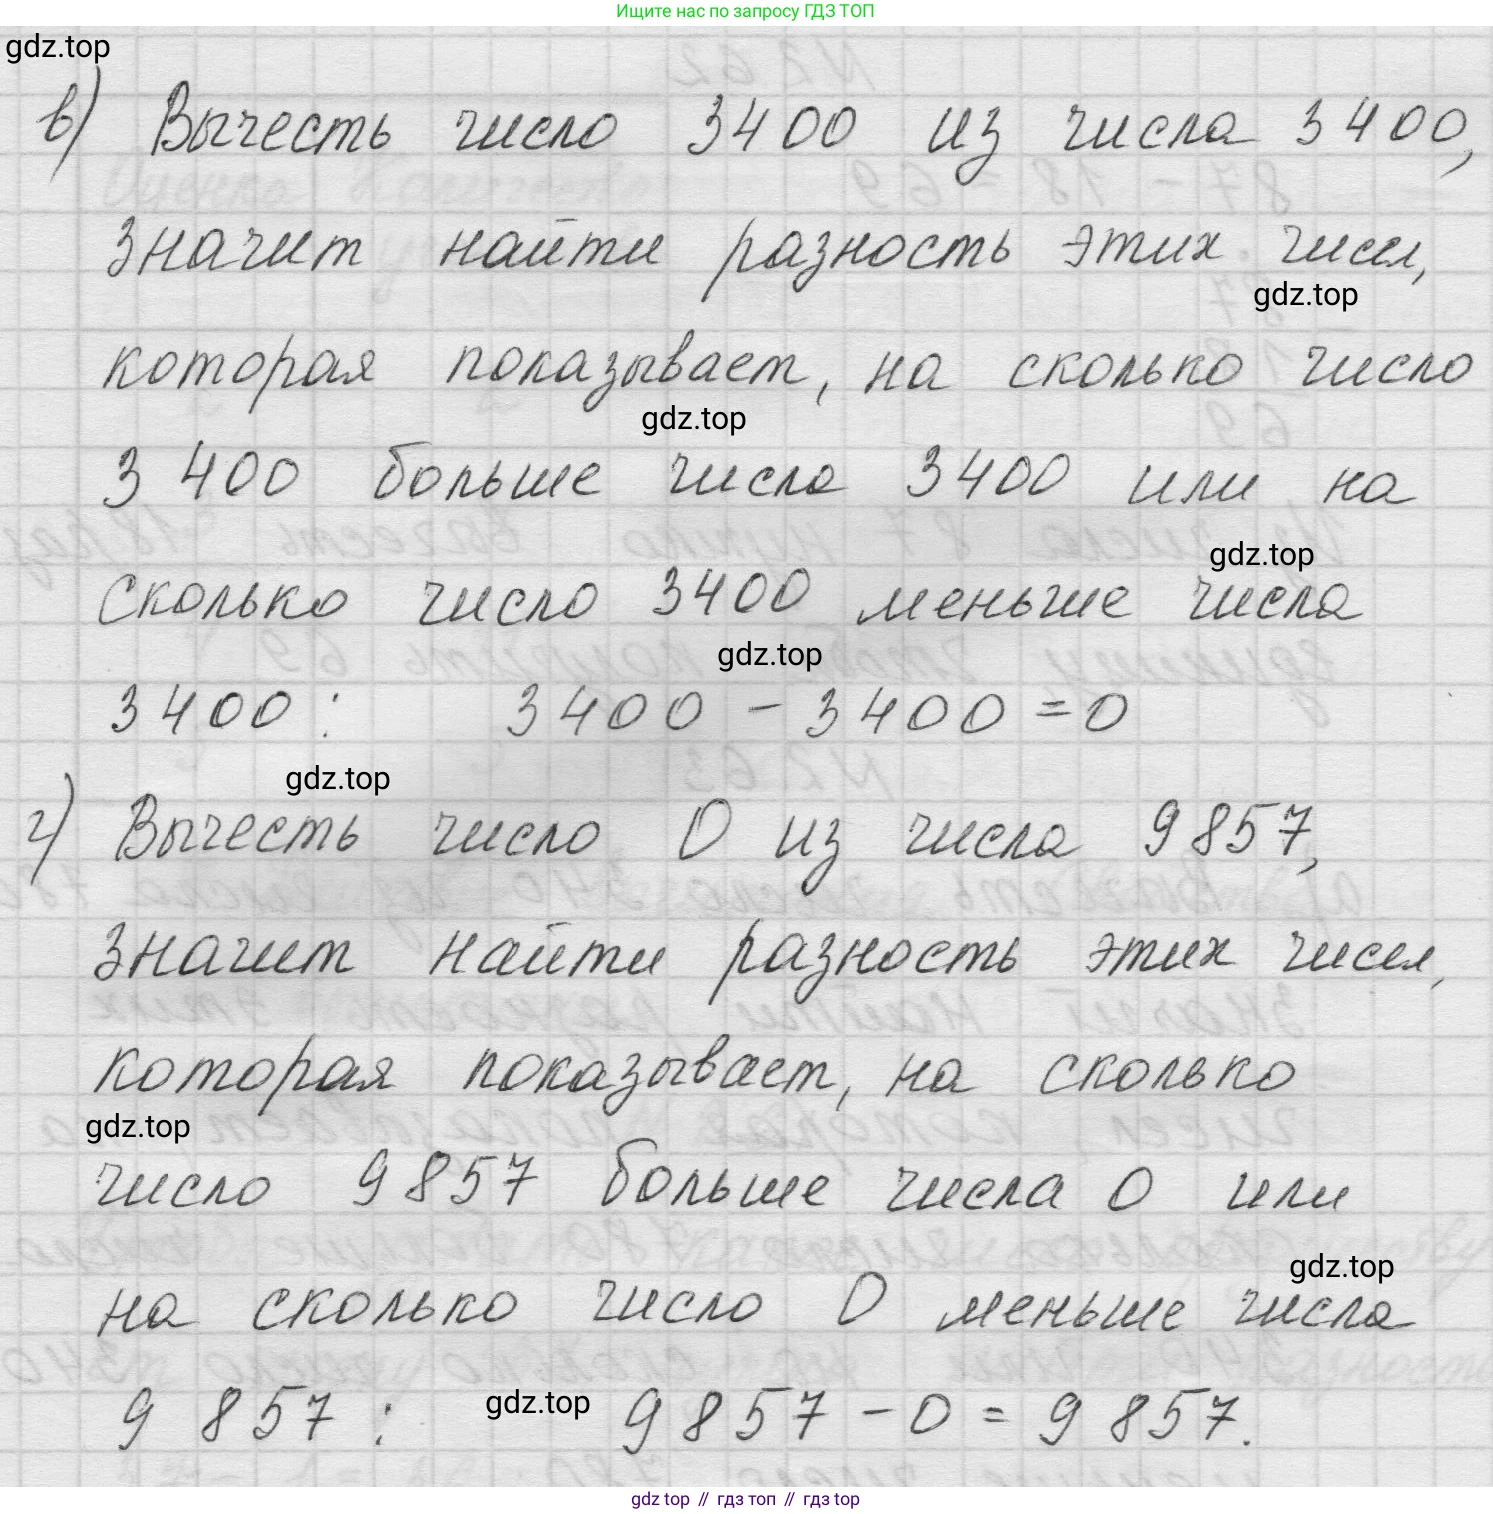 Ищите нас по запросу ГДЗ ТОП
gdz.top
в) Вычесть число 3400 из числа 3400,
значит найти разность этих чисел,
gdz.top
которая показывает, на сколько число
gdz.top
3 400 больше числа 3400 или на
gdz.top
сколько число 3400 меньше числа
gdz.top
3400 : 3400 - 3400 = 0
gdz.top
г) Вычесть число 0 из числа 9857,
значит найти разность этих чисел,
которая показывает, на сколько
gdz.top
число 9857 больше числа 0 или
gdz.top
на сколько число 0 меньше числа
9 857 : gdz.top 9857 - 0 = 9 857.
gdz top // гдз топ // gdz top